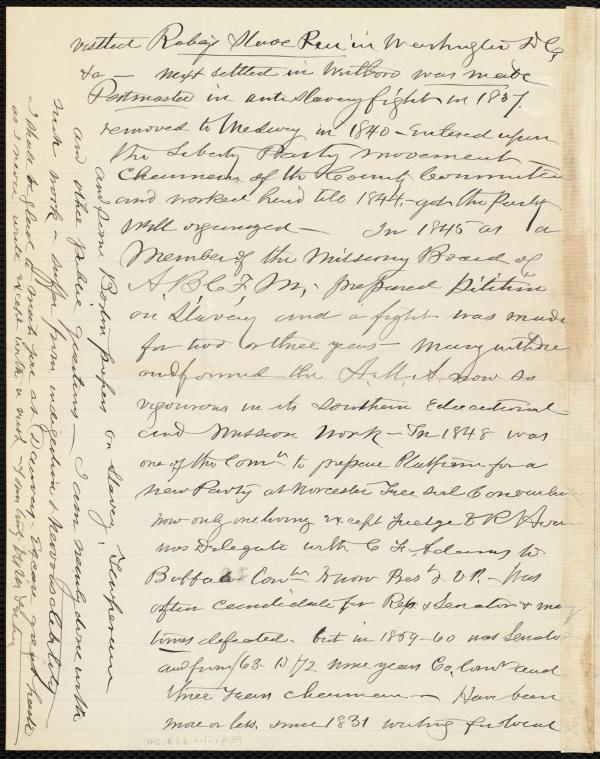 visited Robey Slave Pen in Washington D C,
&c — next settled in Westboro was made
Postmaster in anti slavery fight in 1837.
removed to Medway in 1840 — Entered upon
the Liberty Party movement —
Chairman of the County Committee
and worked hard till 1844. — got the Party
well organized — In 1845 as a
Member of the Missiony Board of
A. B. C. F. M, — prepared Petition
on Slavery and a fight was made
for two or three years — Many withdrew
and formed the A. M. A. now so
vigourous in its Southern Educational
and Mission Work — In 1848 was
one of the Comn to prepare Platform for a
new Party at Worcester Free soil Convention
now only one living except Judge E R Hoar
was Delegate with C F. Adams to
Buffalo Contn to nom Prest & V P. — Was
often candidate for Rep. & Senator & many
times defeated. but in 1859-60 was Senator
and from /63 to /72 nine years Co, Comr and
three years chairman — Have been
more or less. since 1831 writing for local
and some Boston papers on slavery. Temperance
and other public questions — I am nearly done with
such work — suffer from indigestion & nervous debility —
I shall be glad to meet you at Danvers. Excuse great haste
as I never write except with a rush —
Ms. A.1.6. v.12, p.39